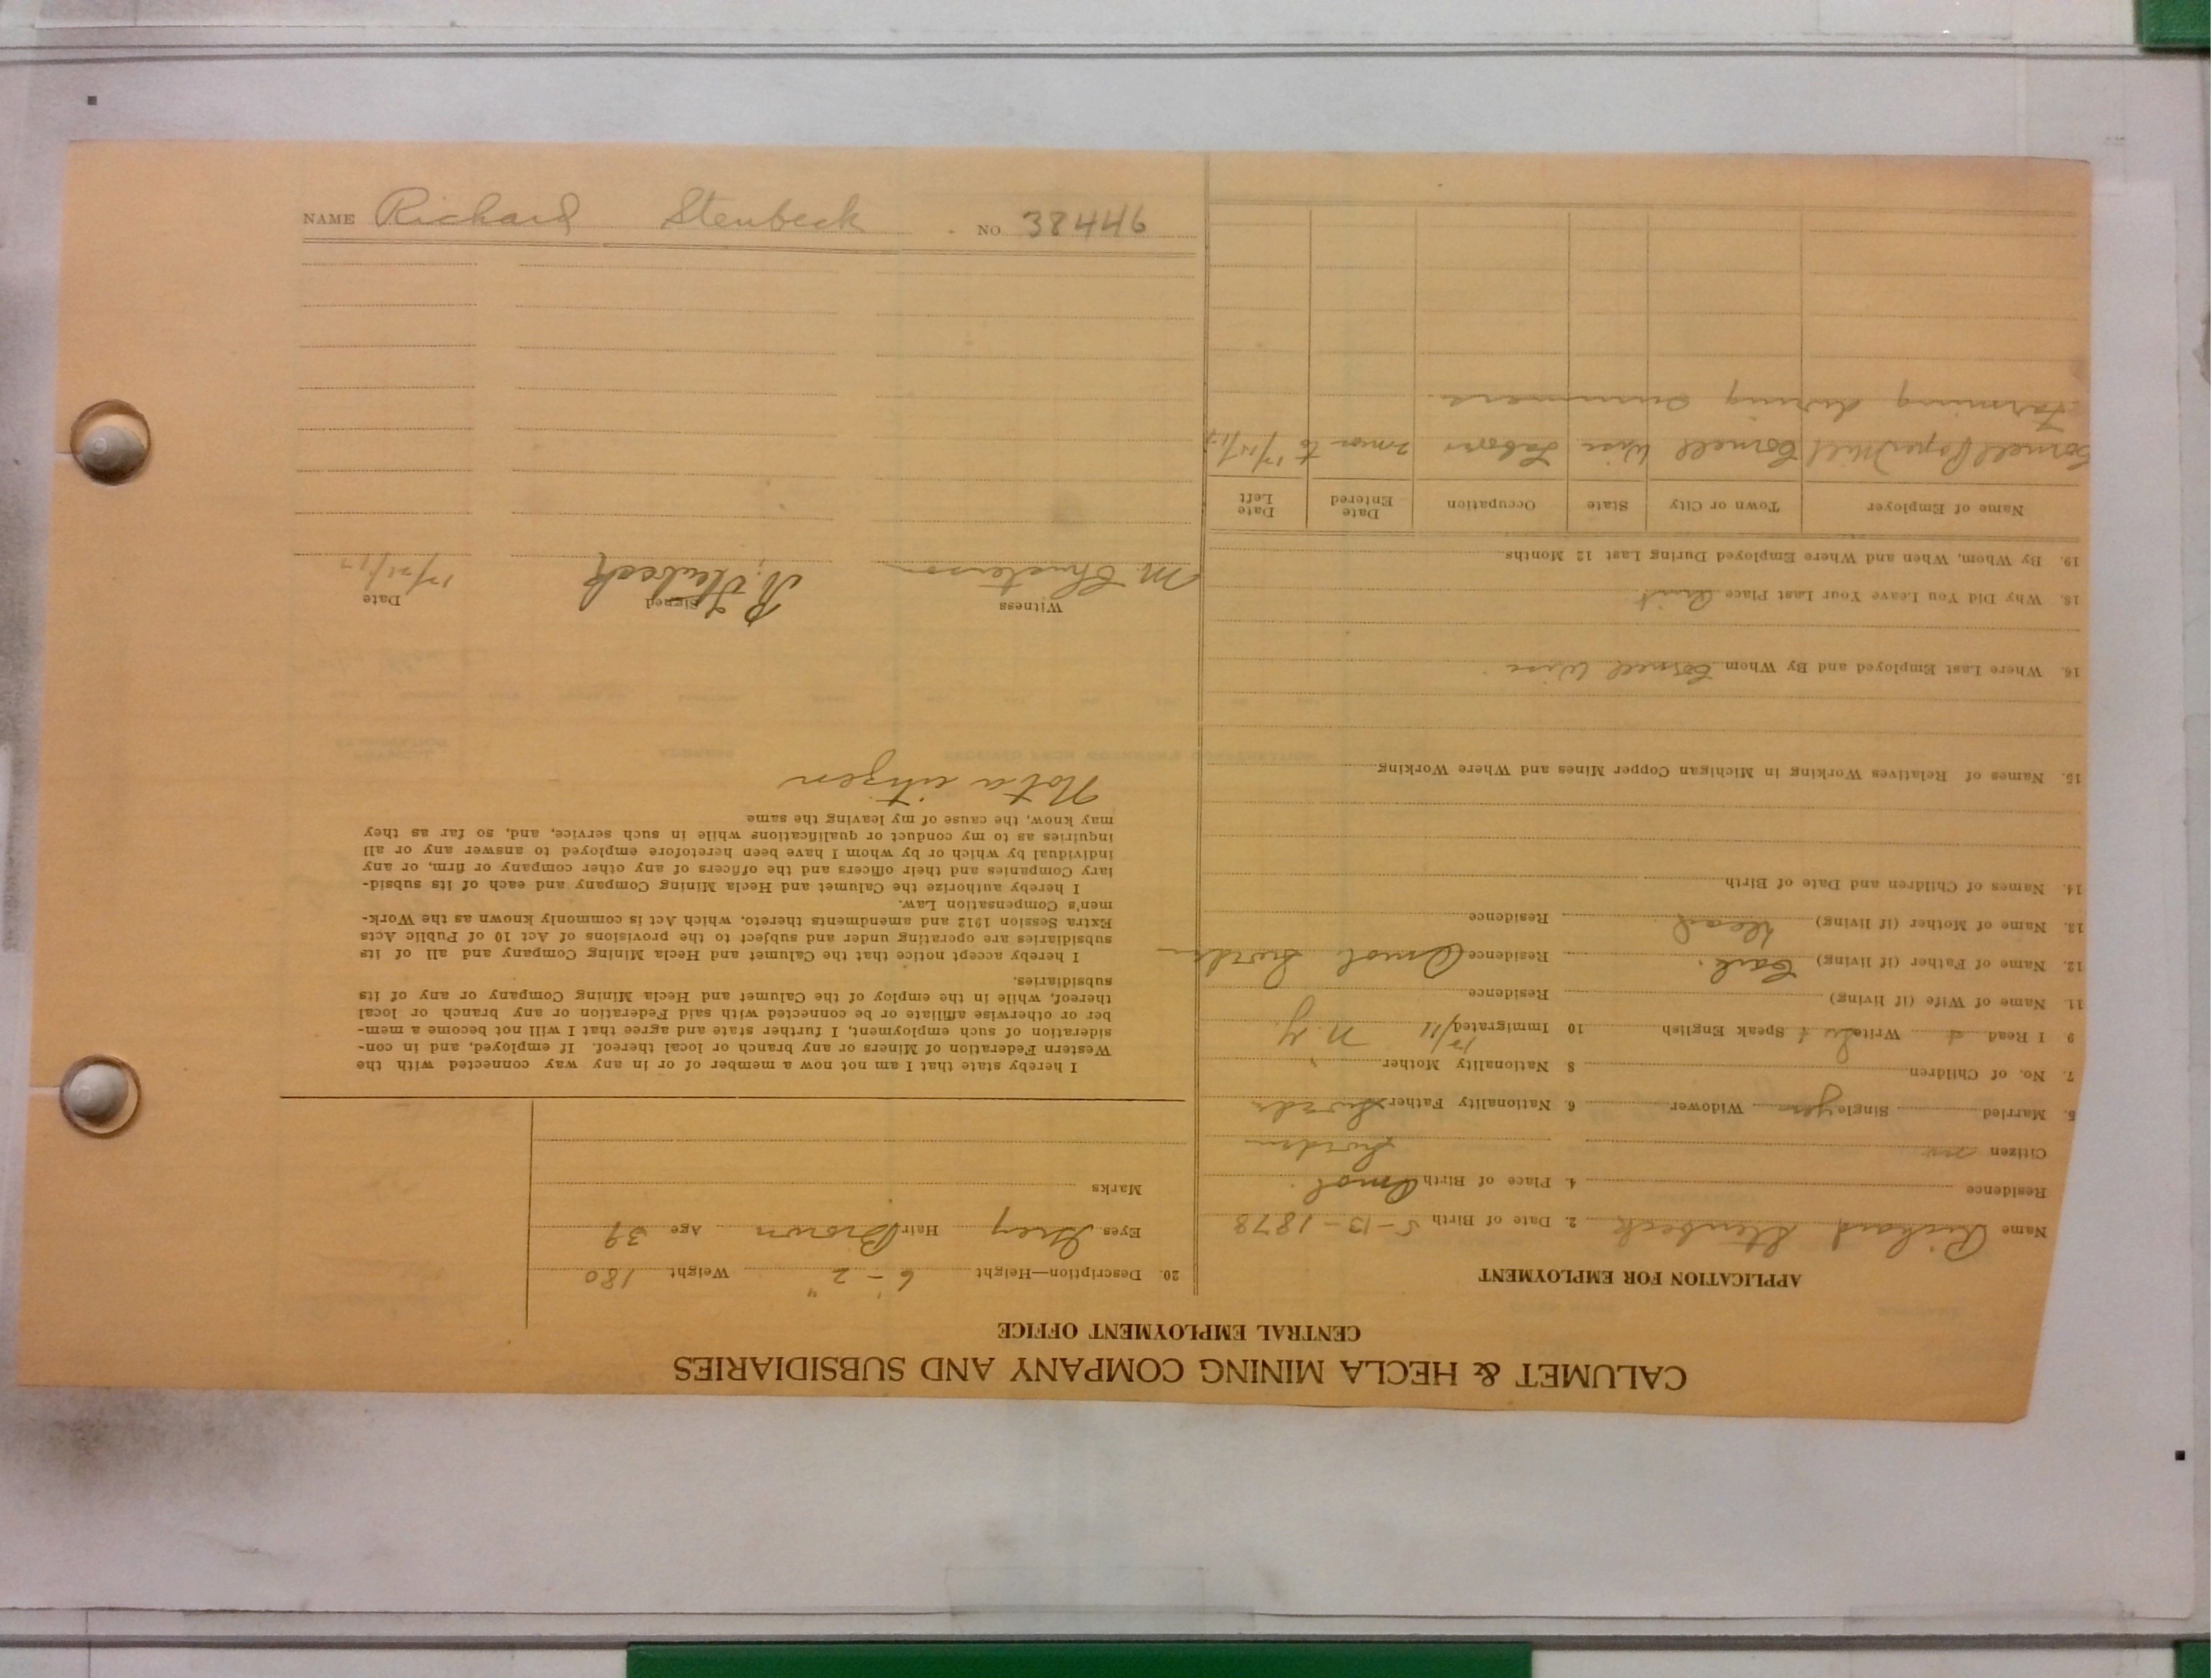 NAME Richard Stenbeck NO 38446
CALUMET & HECLA MINING COMPANY AND SUBSIDIARIES
CENTRAL EMPLOYMENT OFFICE
APPLICATION FOR EMPLOYMENT
Name Richard Stenbeck 2. Date of Birth 5-13-1878
Residence 4. Place of Birth Omol.
Citizen no Sweden
5. Married Single yes Widower 6. Nationality Father Swede
7. No. of Children 8 Nationality Mother "
9 I Read Write Speak English 10 Immigrated 12/11 N.Y.
11. Name of Wife (if living) Residence
12. Name of Father (if living) Carl. Residence Omol Sweden
13. Name of Mother (if living) dead Residence
14. Names of Children and Date of Birth
15. Names of Relatives Working in Michigan Copper Mines and Where Working
16. Where Last Employed and By Whom Cornell Wisc
18. Why Did You Leave Your Last Place Quit.
19. By Whom, When and Where Employed During Last 12 Months
Name of Employer Town or City State Occupation Date Entered Date Left
Cornell Paper Mill Cornell Wisc Labor 2 mos to 12/15/17
Farming during summers.
20. Description—Height 6'-2" Weight 180
Eyes Grey Hair Brown Age 39
Marks
I hereby state that I am not now a member of or in any way connected with the
Western Federation of Miners or any branch or local thereof. If employed, and in con-
sideration of such employment, I further state and agree that I will not become a mem-
ber or otherwise affiliate or be connected with said Federation or any branch or local
thereof, while in the employ of the Calumet and Hecla Mining Company or any of its
subsidiaries.
I hereby accept notice that the Calumet and Hecla Mining Company and all of its
subsidiaries are operating under and subject to the provisions of Act 10 of Public Acts
Extra Session 1912 and amendments thereto, which Act is commonly known as the Work-
men's Compensation Law.
I hereby authorize the Calumet and Hecla Mining Company and each of its subsid-
iary Companies and their officers and the officers of any other company or firm, or any
individual by which or by whom I have been heretofore employed to answer any or all
inquiries as to my conduct or qualifications while in such service, and, so far as they
may know, the cause of my leaving the same
Not a citizen
Witness Signed Date
R. Stenbeck 12/21/17